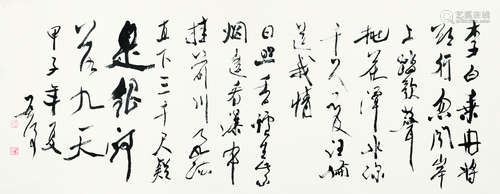 李白乘舟将
欲行忽闻岸
上踏歌声
桃花潭水深
千尺不及汪伦
送我情
日照香炉生紫
烟遥看瀑布
挂前川飞流
直下三千尺疑
是银河
落九天
甲子年夏